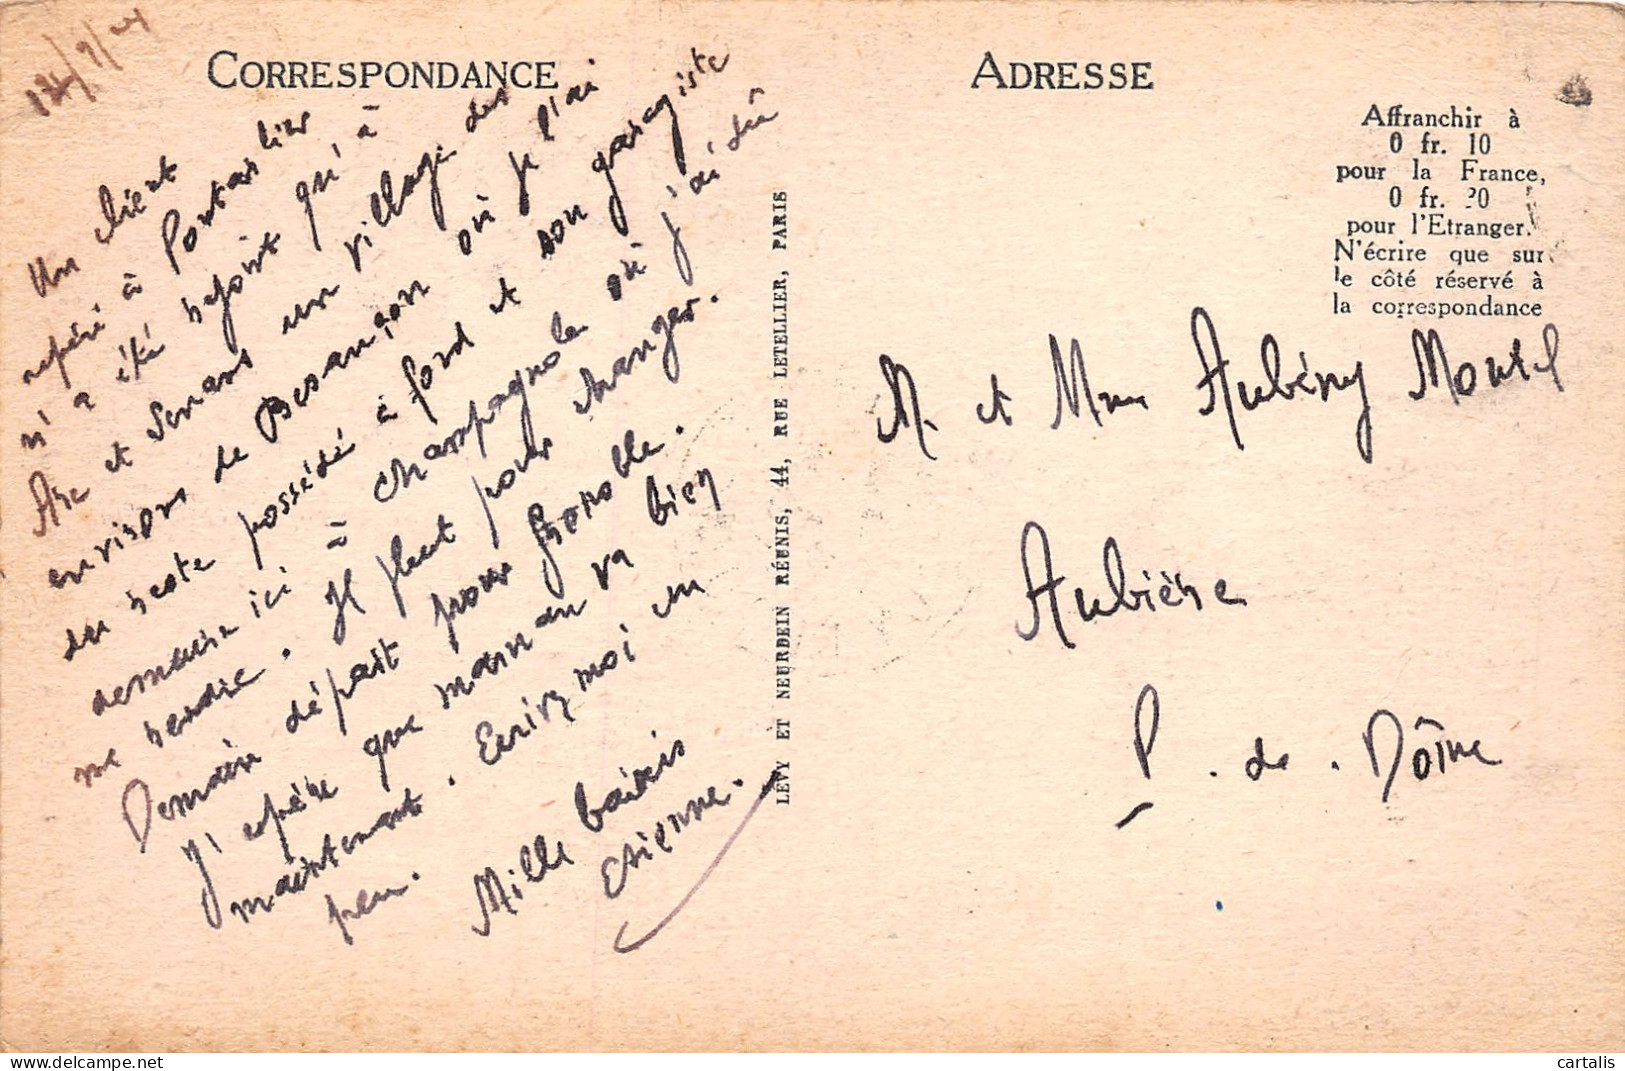 CORRESPONDANCE
Un client
repéré à Pontarlier
n'a été rejoint qu'à
Arc et Senans un village des
environs de Besançon où je l'ai
du reste possédé à fond et son garagiste
demeure ici à Champagnole où j'ai dû
me rendre. Il pleut pour changer.
Demain départ pour Grenoble.
J'espère que maman va bien
maintenant. Ecrivez moi un
peu.
Mille baisers
Etienne.
LÉVY ET NEURDEIN RÉUNIS, 44, RUE LETELLIER, PARIS
ADRESSE
Affranchir à
0 fr. 10
pour la France,
0 fr. 20
pour l'Etranger.
N'écrire que sur
le côté réservé à
la correspondance
M. et Mme Aubény Morel
Aubière
P. de. Dôme
cartalis